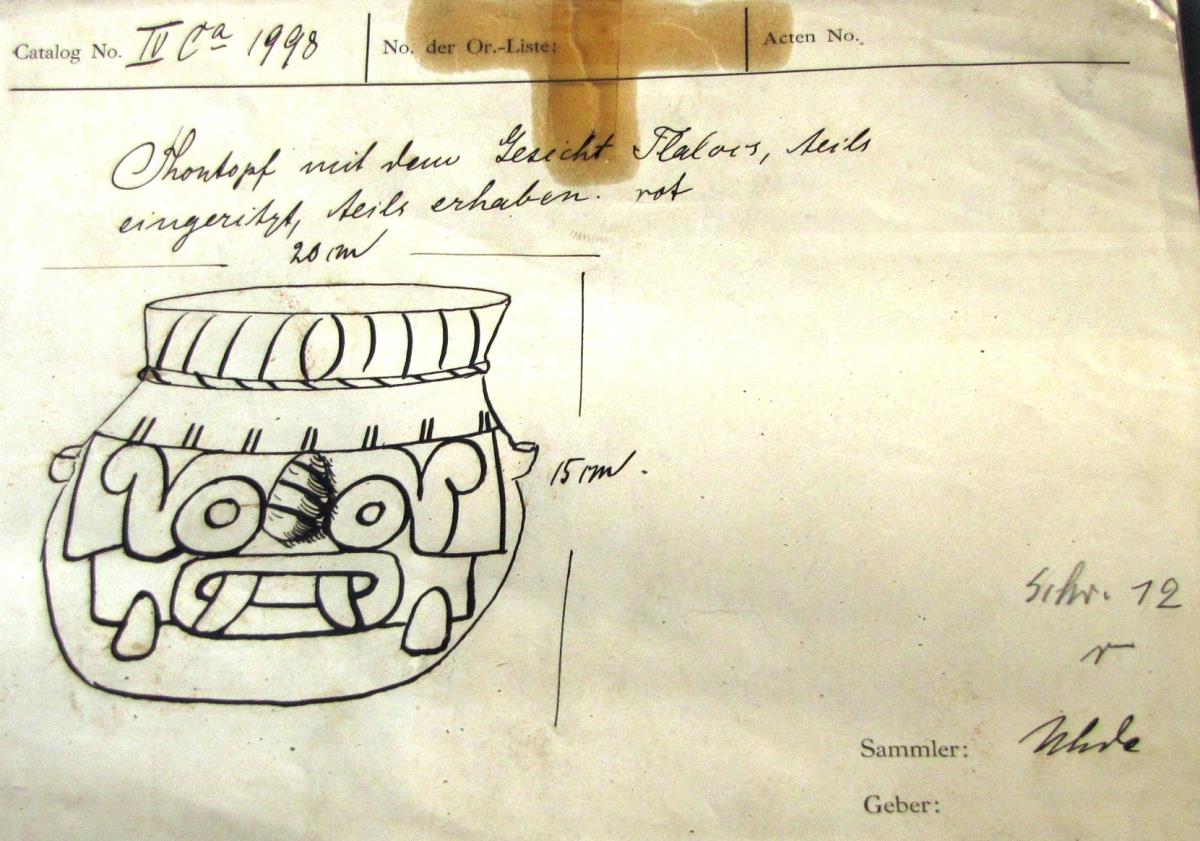 Catalog No. IV Ca 1998 No. der Or.-Liste: Acten No.
Thontopf mit dem Gesicht Tlalocs, teils
eingeritzt, teils erhaben. rot
20 cm
15 cm.
Schr. 12
r
Sammler: Uhde
Geber: